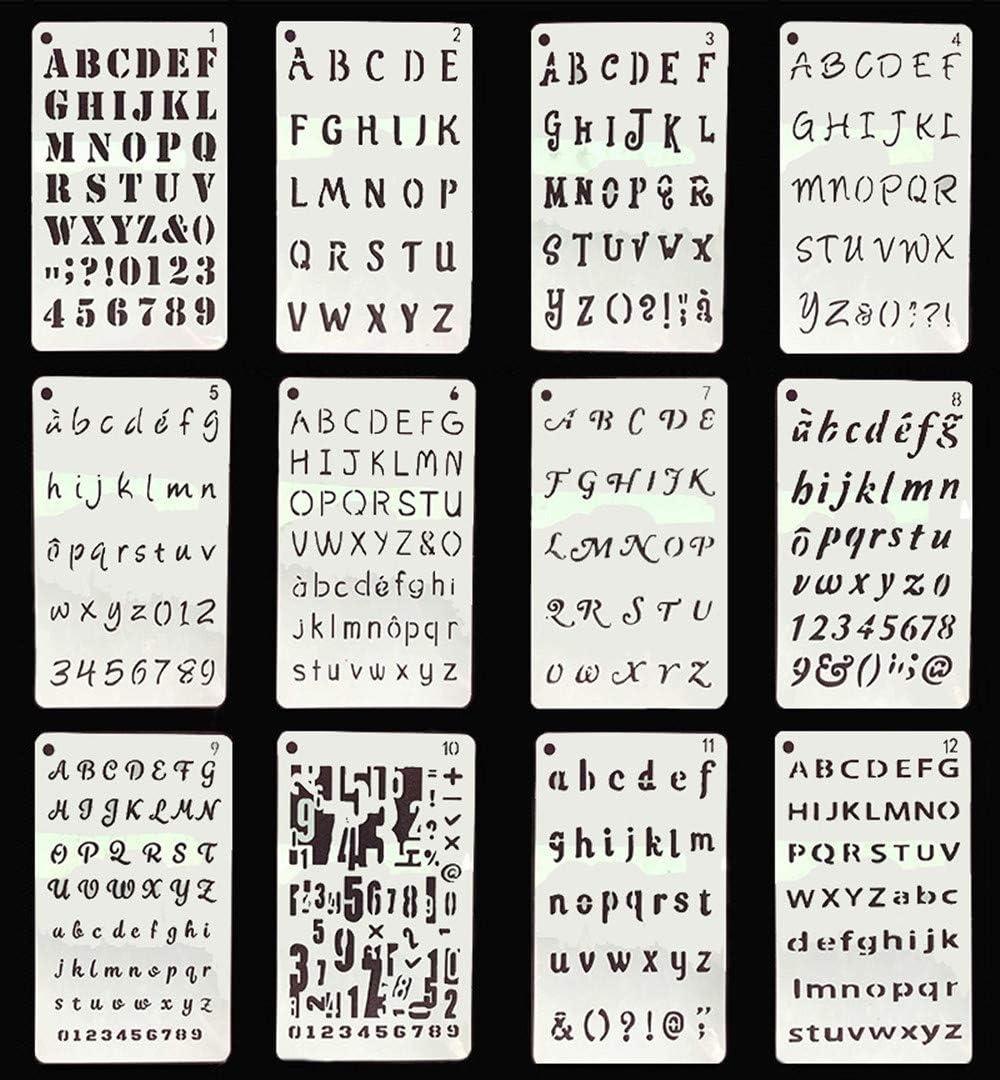 1
ABCDEF
GHIJKL
MNOPQ
RSTUV
WXYZ&()
";?!0123
456789
2
ABCDE
FGHIJK
LMNOP
QRSTU
VWXYZ
3
ABCDEF
GHIJKL
MNOPQR
STUVWX
YZ()?!;"à
4
ABCDEF
GHIJKL
MNOPQR
STUVWX
YZ&():?!
5
àbcdéfg
hijklmn
ôpqrstuv
wxyz012
3456789
6
ABCDEFG
HIJKLMN
OPQRSTU
VWXYZ&()
àbcdéfghi
jklmnôpqr
stuvwxyz
7
ABCDE
FGHIJK
LMNOP
QRSTU
VWXYZ
8
àbcdéfg̃
hijklmn
ôpqrstu
vwxyz0
12345678
9&()";@
9
ABCDEFG
HIJKLMN
OPQRST
UVWXYZ
abcdefghi
jklmnopqr
stuvwxyz
0123456789
10
0123456789
11
abcdef
ghijklm
nopqrst
uvwxyz
&()?!@";
12
ABCDEFG
HIJKLMNO
PQRSTUV
WXYZabc
defghijk
lmnopqr
stuvwxyz